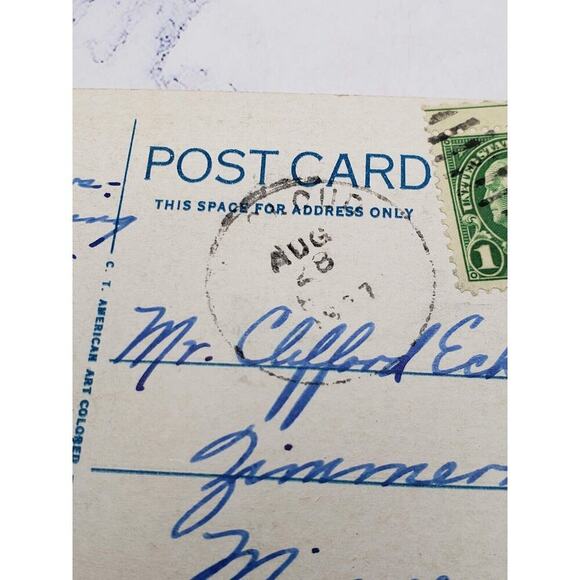 POST CARD
THIS SPACE FOR ADDRESS ONLY
UNITED STATES
1
AUG
28
C. T. AMERICAN ART COLORED
Mr. Clifford Eck
Zimmer